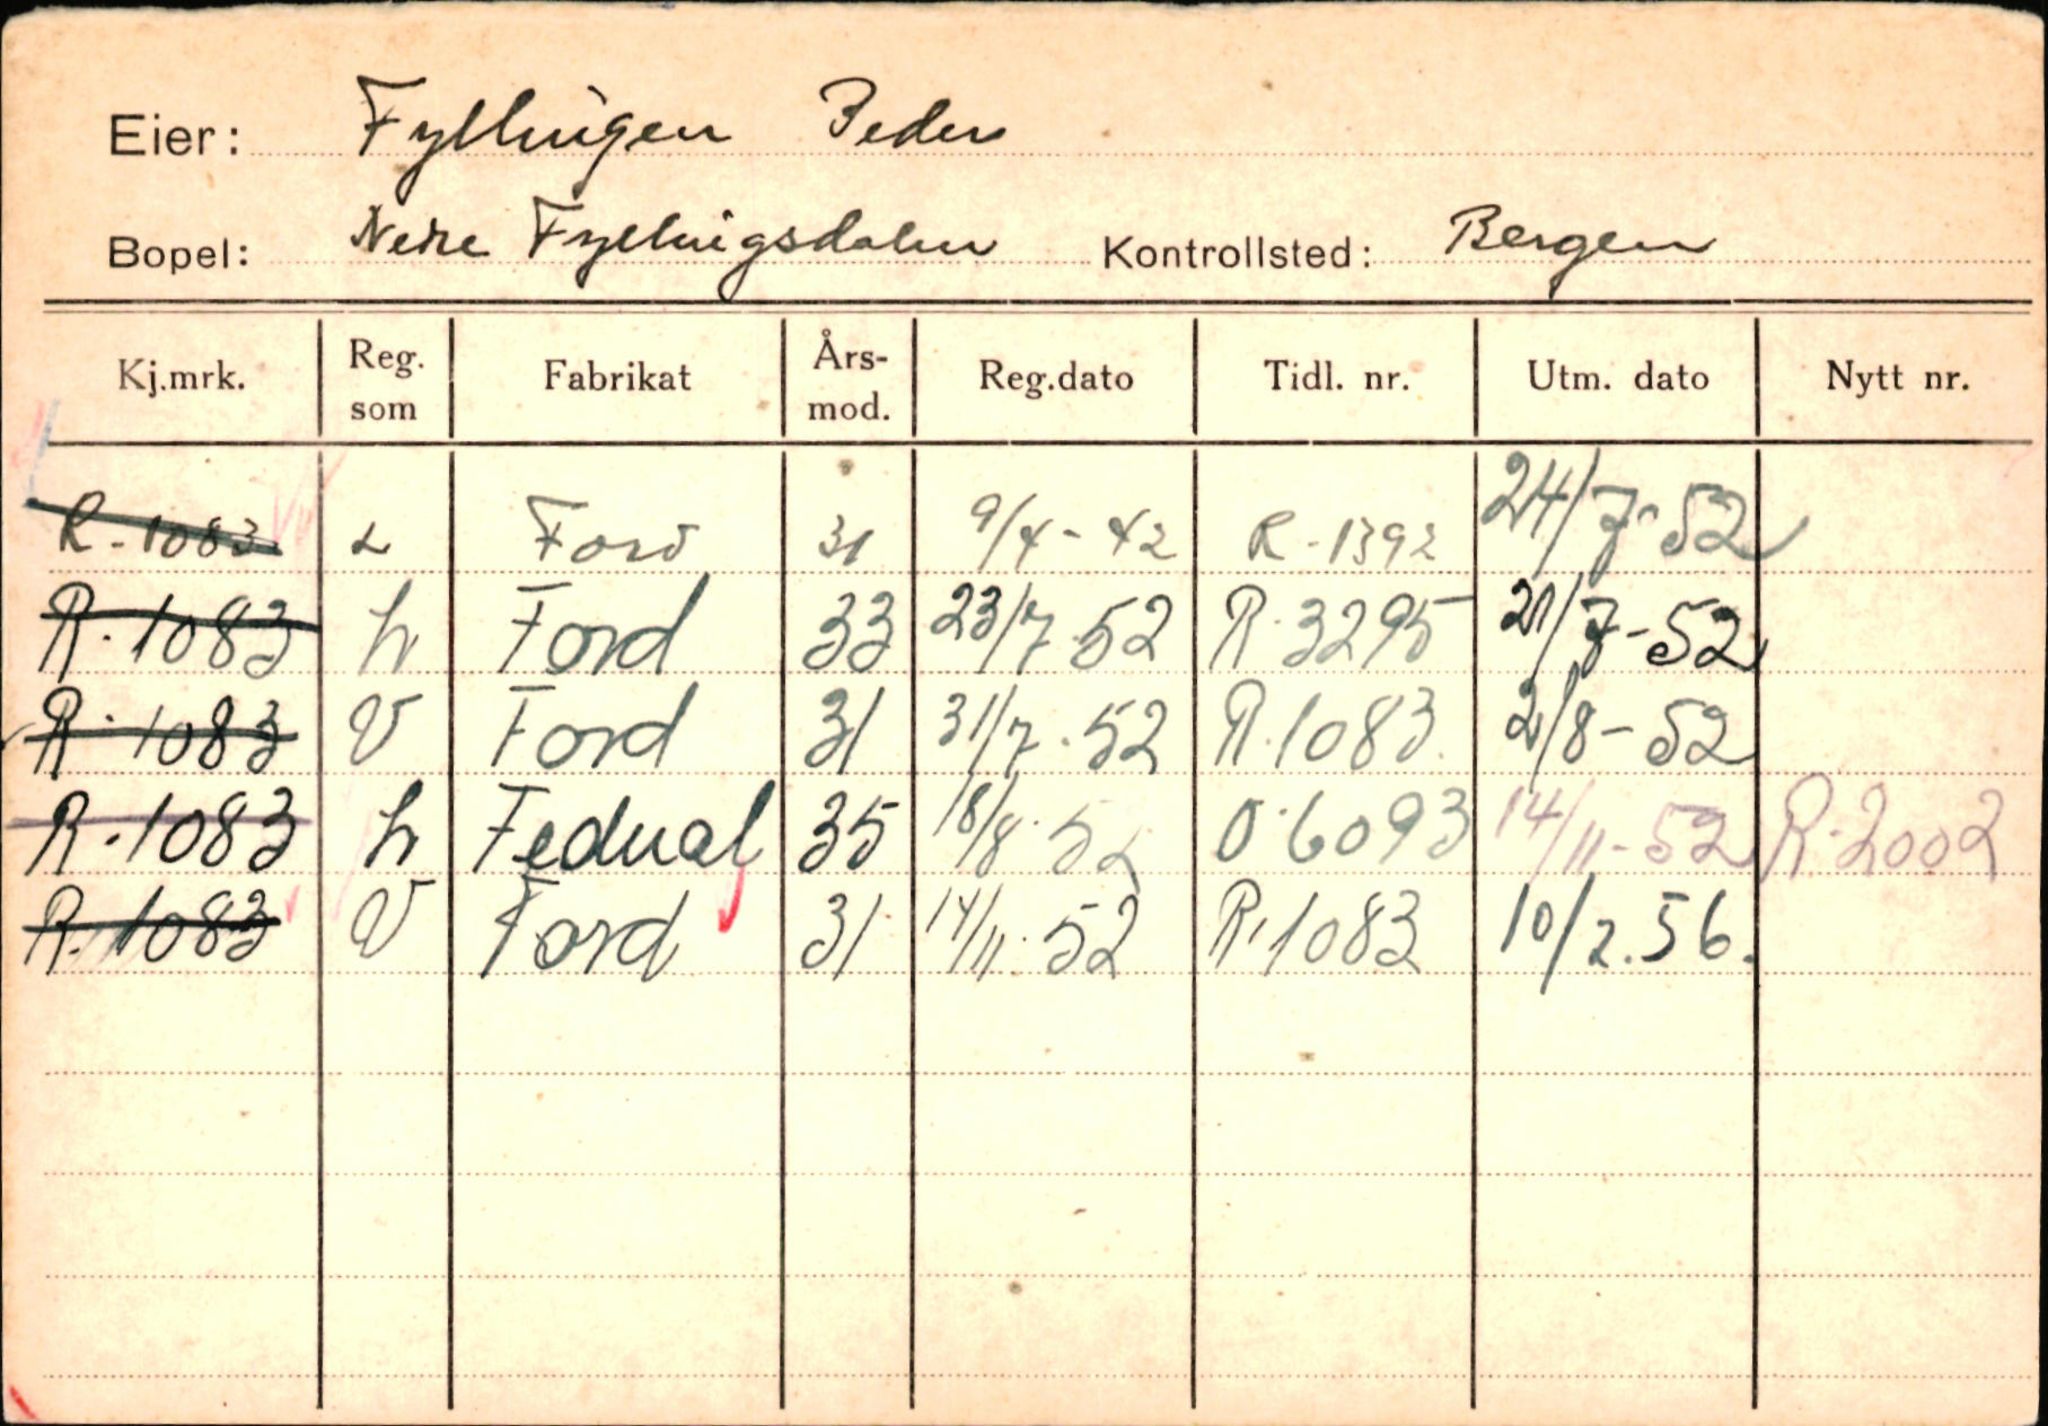 Eier: Fyllingen Peder
Bopel: Nedre Fyllingsdalen Kontrollsted: Bergen
Kj.mrk. Reg. som Fabrikat Års-mod. Reg.dato Tidl. nr. Utm. dato Nytt nr.
R-1083 L Ford 31 9/4-42 R-1392 24/7-52
R-1083 L Ford 33 23/7-52 R-3295 /7-52
R-1083 V Ford 31 31/7-52 R-1083 /8-52
R-1083 L Federal 35 18/8-52 O-6093 14/11-52 R-2002
R-1083 V Ford 31 14/11-52 R-1083 10/2.56.